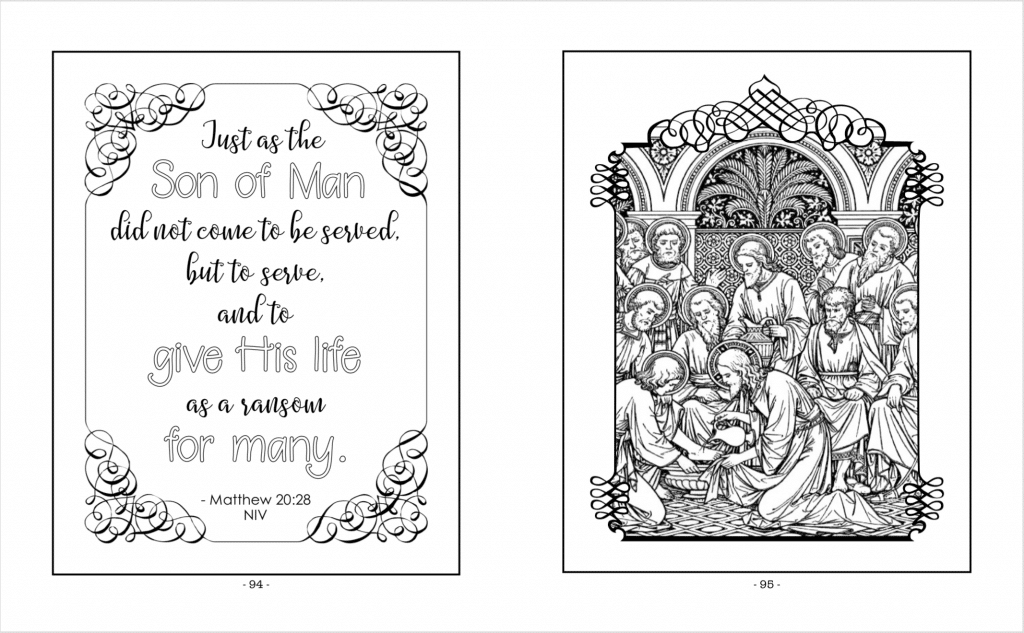 Just as the
Son of Man
did not come to be served,
but to serve,
and to
give His life
as a ransom
for many.
- Matthew 20:28
NIV
- 94 -
- 95 -